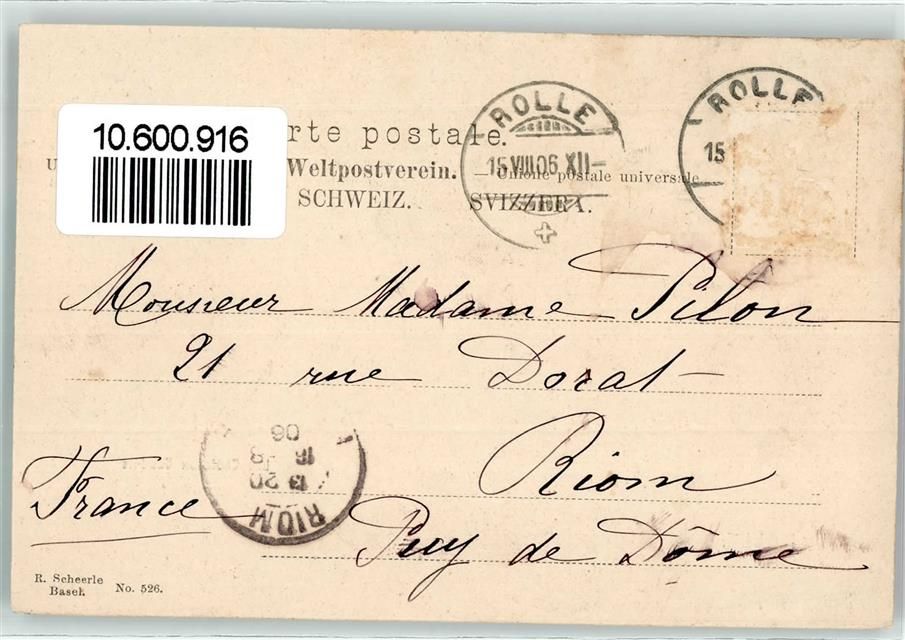 10.600.916
rte postale.
ROLLE
15.VIII.06.XII-
ROLLE
15
Weltpostverein. — Unione postale universale
SCHWEIZ. SVIZZERA.
Monsieur Madame Pilon
21 rue Dorat
Riom
France
Puy de Dôme
RIOM
13 20
16 - 8
06
R. Scheerle
Basel. No. 526.